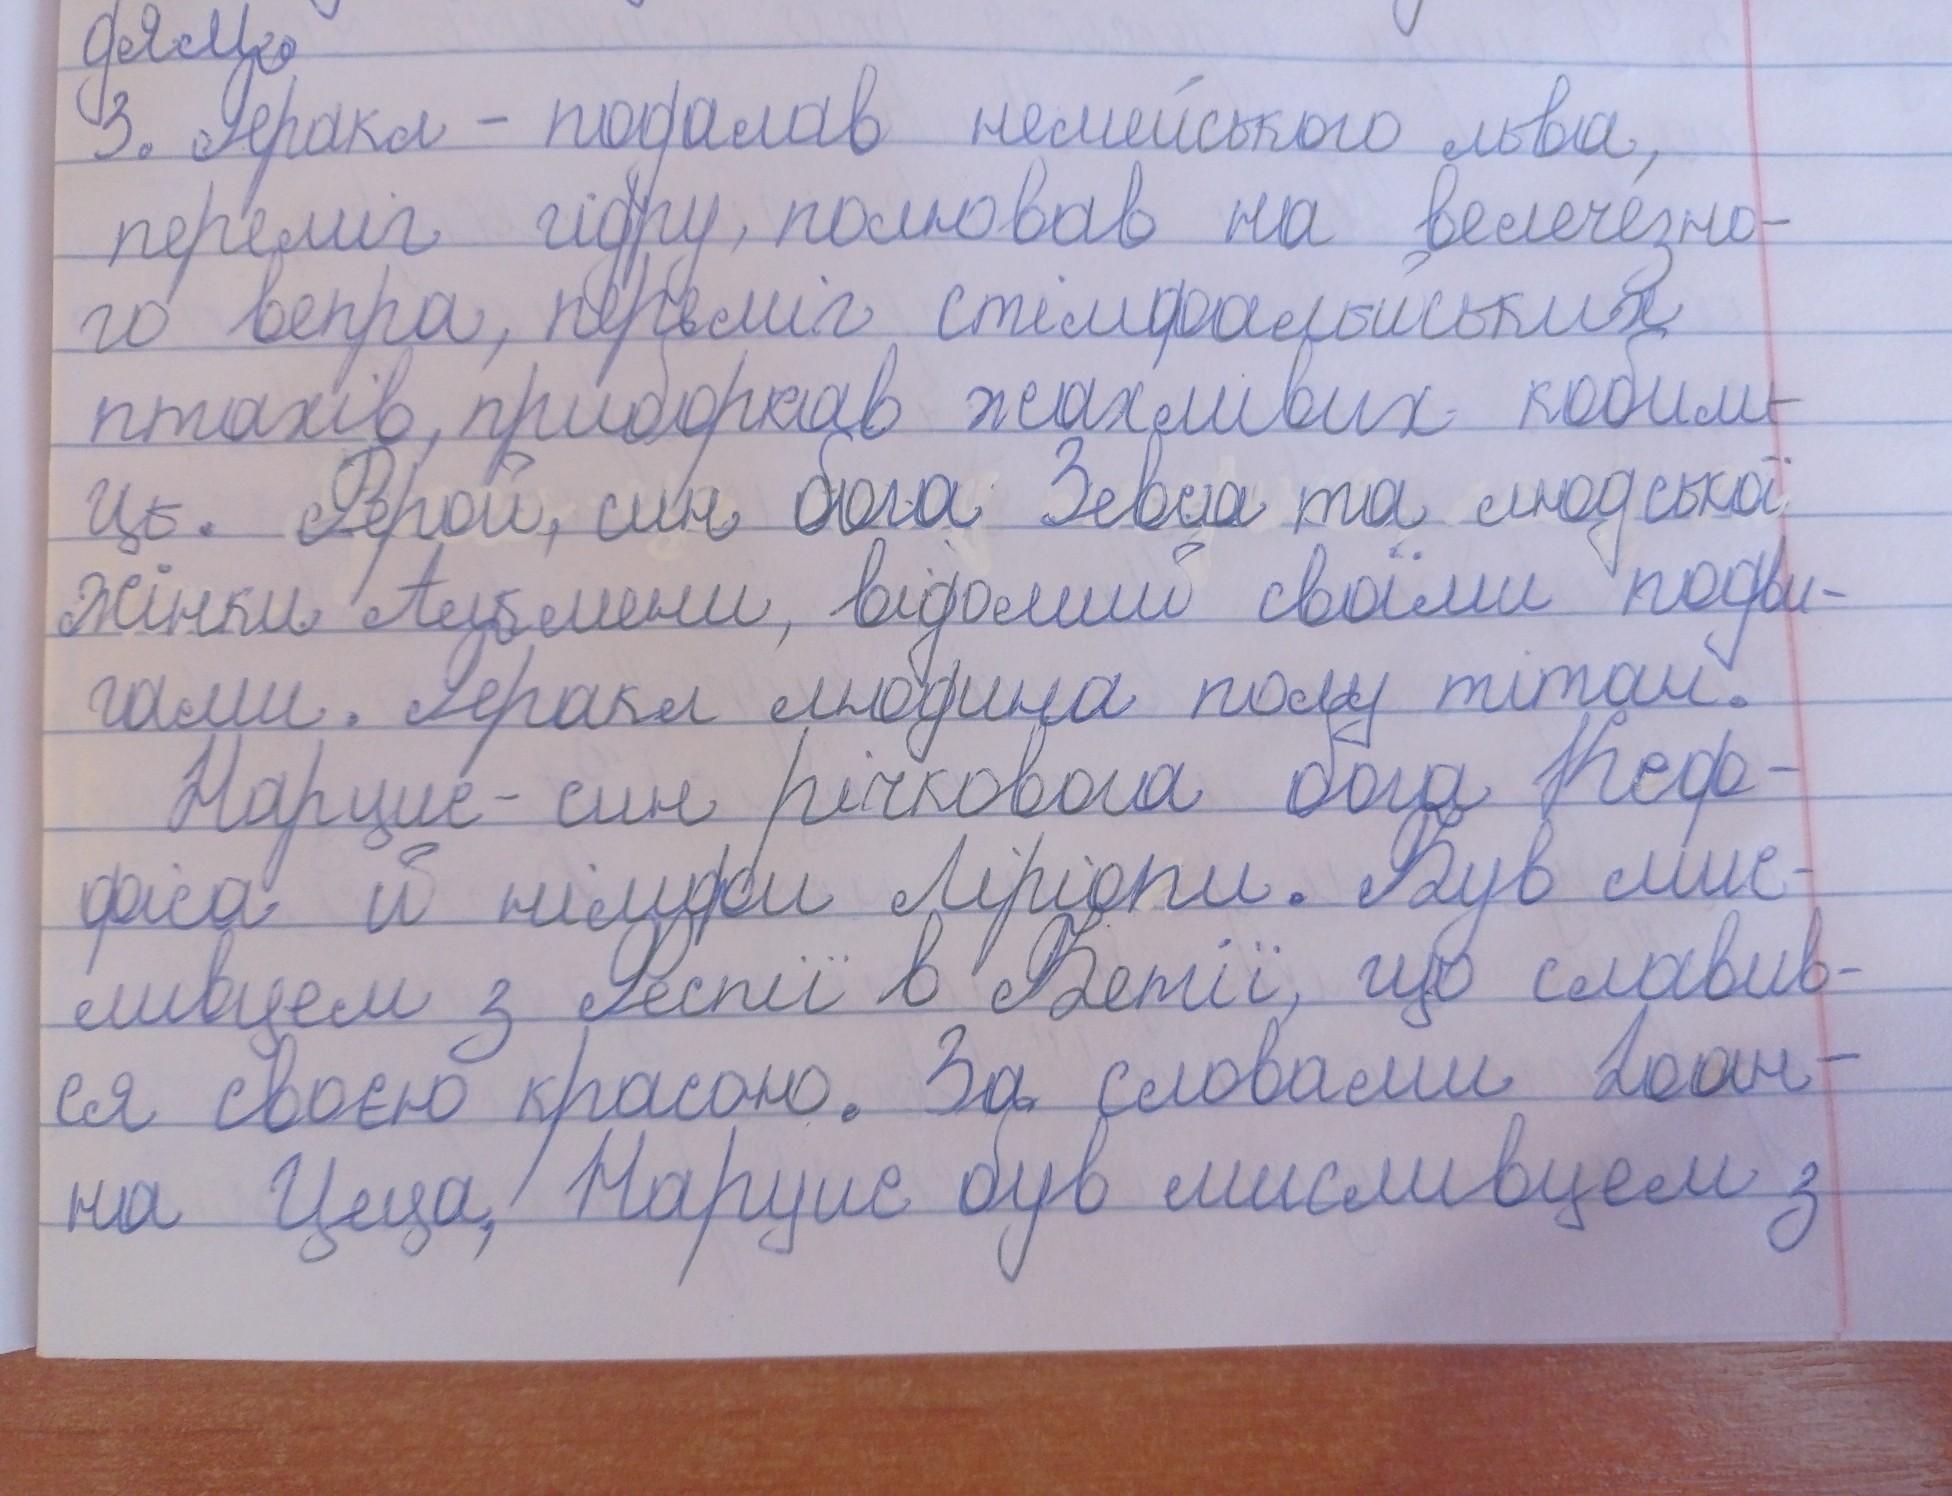 дям.
3. Геракл - подалав немейського льва,
переміг гідру, полював на велечезно-
го вепра, переміг стімфальйських
птахів, приборкав жахливих кобили-
ць. Герой, син бога Зевса та людської
жінки Алкмени, відомий своїми подви-
гами. Геракл людина полу тітан.
Нарцис - син річкового бога Кеф-
фіса й німфи Ліріопи. Був мис-
ливцем з Феспії в Бетії, що славив-
ся своєю красою. За словами Іоан-
на Цеца, Нарцис був мисливцем з